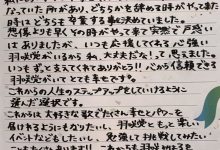 っていた所があり、どちらかを辞める時がやって来た
時はどちらも卒業する事に決めていました。
想像よりも早くその時がやって来て突然で戸惑い
はありましたが、いつも応援してくれる心強い
羽咲党がいるから私、大丈夫だな！って思えました。
いつもずっと支えてくれてありがとう!! 心から信頼できる
羽咲党がいてとても幸せです。
これからの人生のステップアップをしていけるように
選んだ選択です。
これからは大好きな歌でたくさん幸せとパワーを
届けれるようにもなりたいし、羽咲党ともっと楽しい
イベントなどもしたいし、 勉強して挑戦してみたい